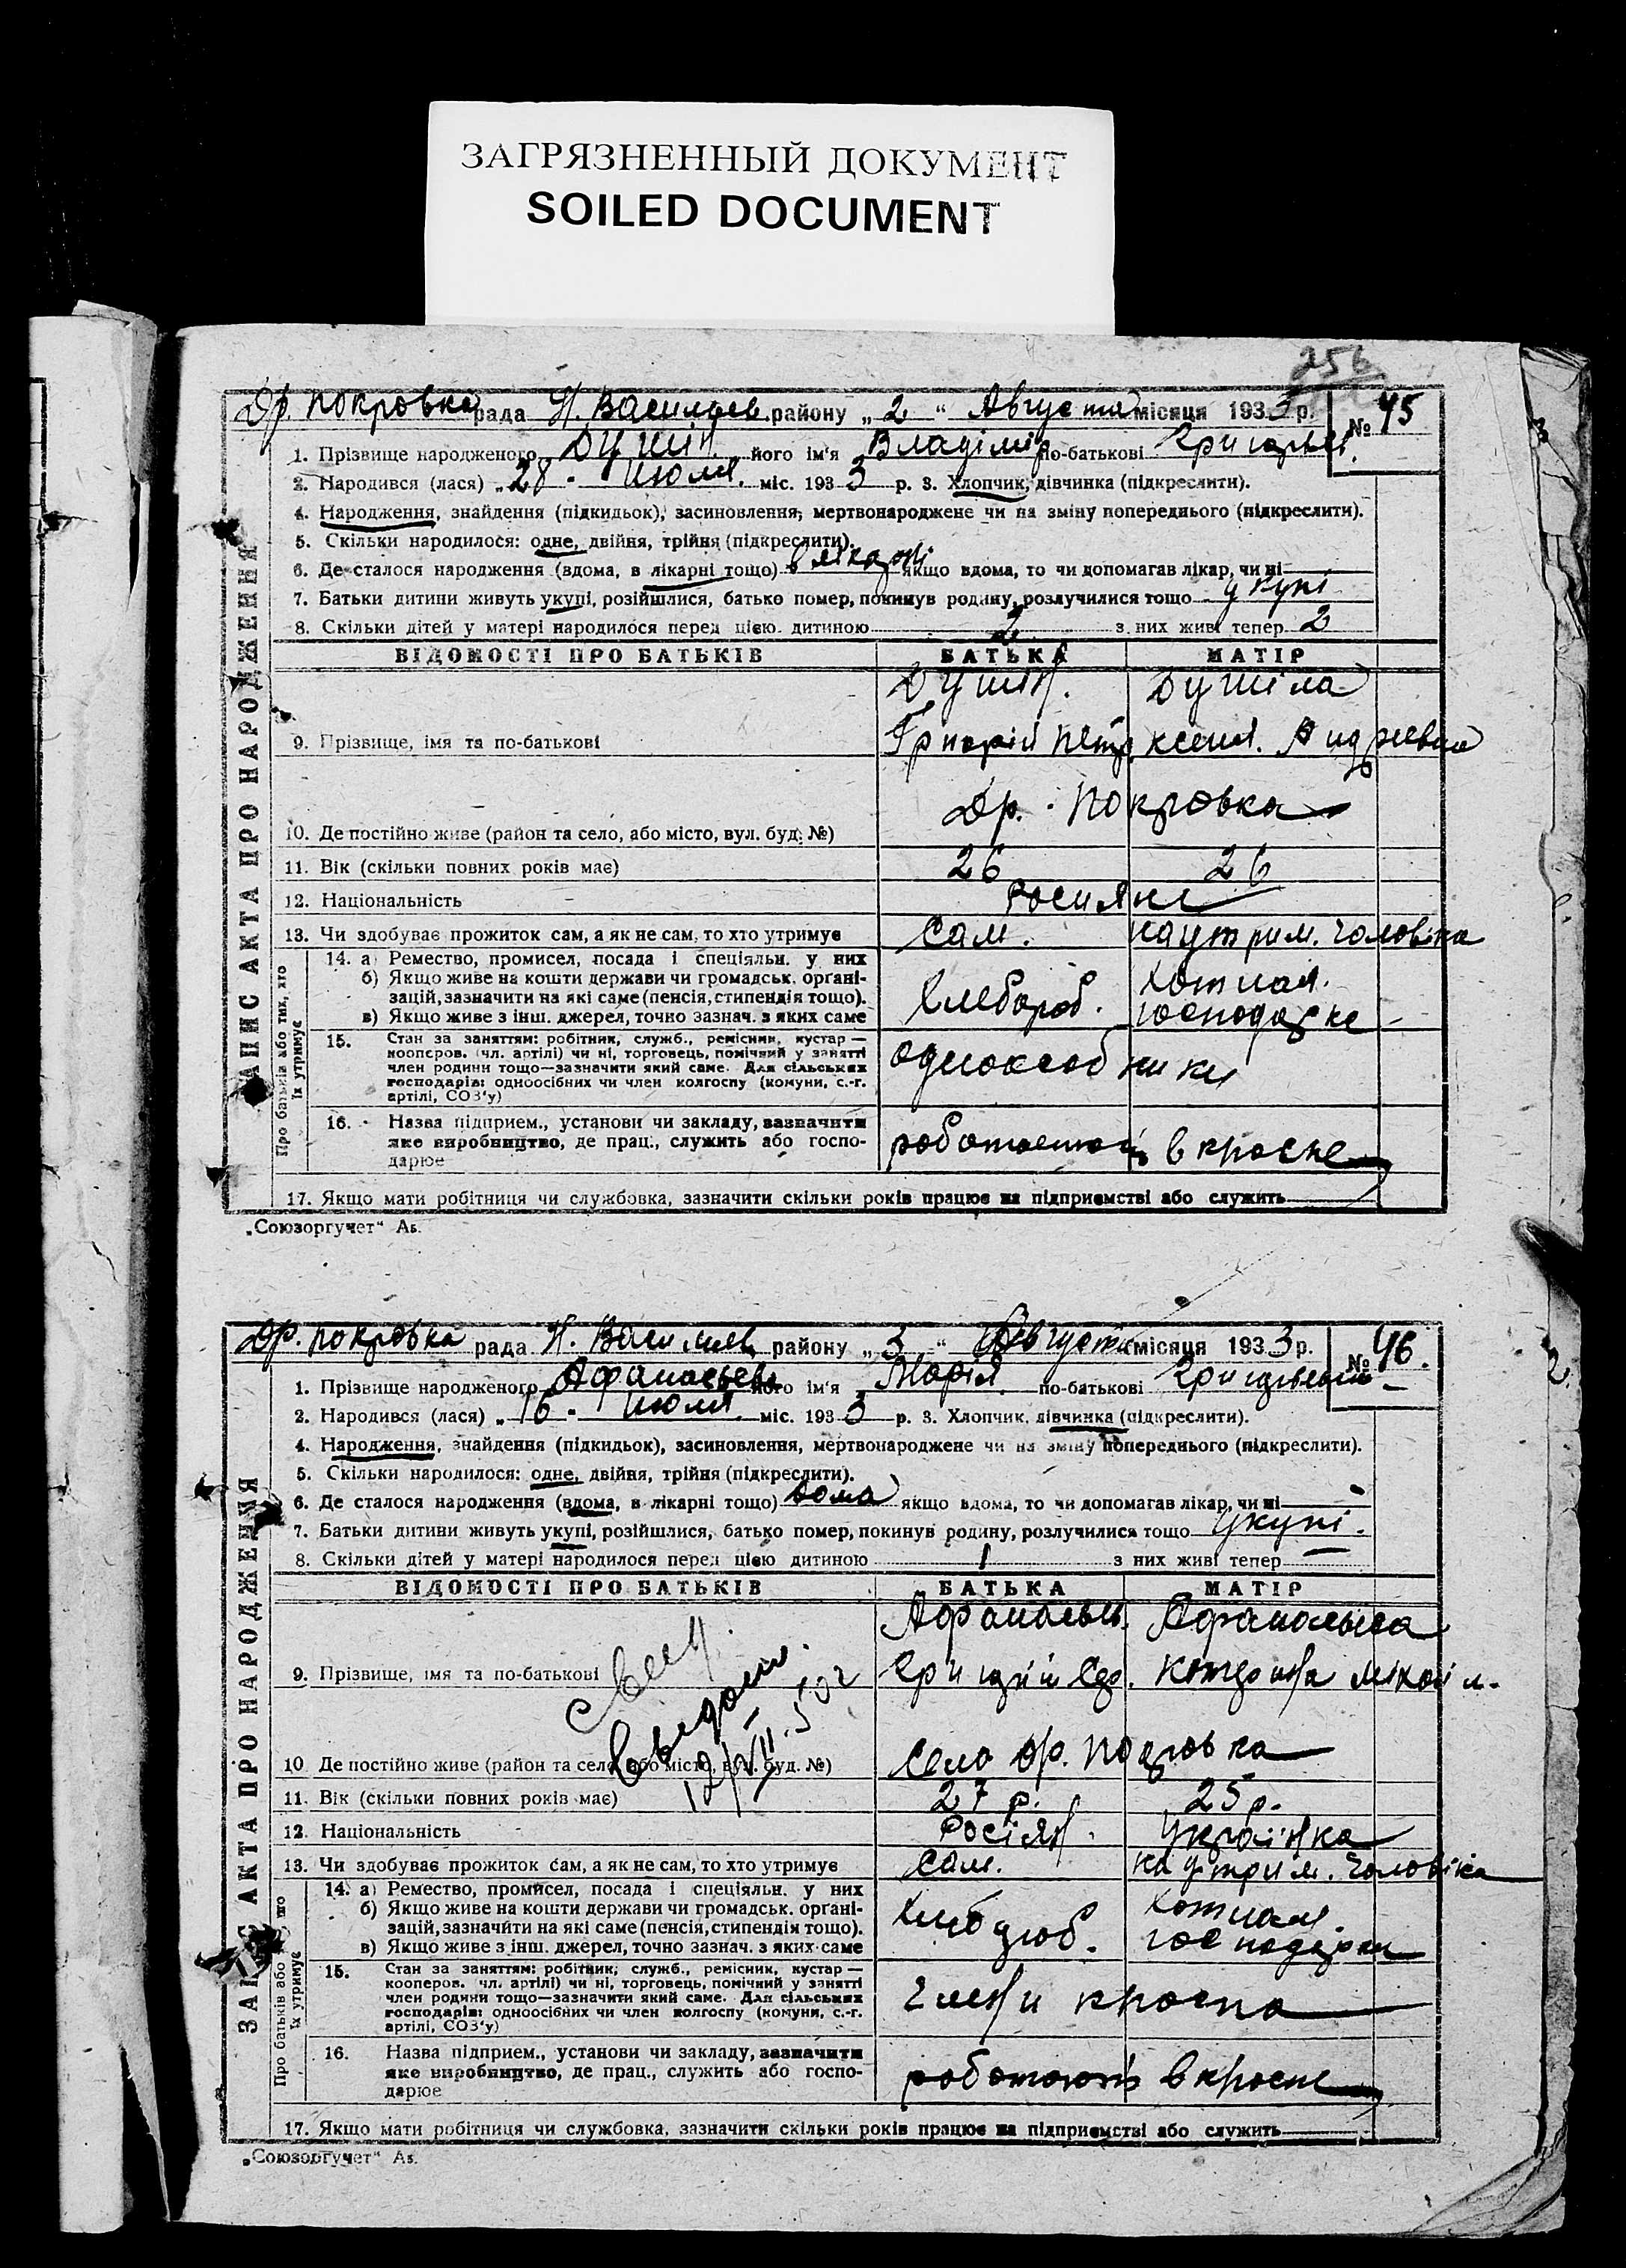 ЗАГРЯЗНЕННЫЙ ДОКУМЕНТ
SOILED DOCUMENT
256
Др. покровка рада Н. Васильев. району „ 2 “ Августа місяця 1933 р. № 45
1. Прізвище народженого його ім'я Владімір по-батькові Григорьев.
2. Народився (лася) „ 28 - июля. міс. 193 3 р. 3. Хлопчик, дівчинка (підкреслити).
4. Народження, знайдення (підкидьок), засиновлення, мертвонароджене чи на зміну попереднього (підкреслити).
5. Скільки народилося: одне, двійня, трійня (підкреслити).
6. Де сталося народження (вдома, в лікарні тощо) в лікарні якщо вдома, то чи допомагав лікар, чи ні
7. Батьки дитини живуть укупі, розійшлися, батько помер, покинув родину, розлучилися тощо укупі
8. Скільки дітей у матері народилося перед цією дитиною 2 з них живі тепер 2
ВІДОМОСТІ ПРО БАТЬКІВ БАТЬКА МАТІР
9. Прізвище, імя та по-батькові Григорій Петр. Ксенія. Андреевна
10. Де постійно живе (район та село, або місто, вул. буд. №) Др. Покровка
11. Вік (скільки повних років має) 26 26
12. Національність Росияне
13. Чи здобуває прожиток сам, а як не сам, то хто утримує Сам. на утрим. чоловіка
14. а) Ремество, промисел, посада і спеціяльн. у них
б) Якщо живе на кошти держави чи громадськ. органі-
зацій, зазначити на які саме (пенсія, стипендія тощо).
в) Якщо живе з інш. джерел, точно зазнач. з яких саме
Хлебороб. хотная. господарке
15. Стан за заняттям: робітник, служб., ремісник, кустар —
кооперов. (чл. артілі) чи ні, торговець, помічний у занятті
член родини тощо—зазначити який саме. Для сільських
господарів: одноосібних чи член колгоспу (комуни, с.-г.
артілі, СОЗ'у)
16. Назва підприєм., установи чи закладу, зазначити
яке виробництво, де прац., служить або госпо-
дарює
17. Якщо мати робітниця чи службовка, зазначити скільки років працює на підприємстві або служить
ЗАПИС АКТА ПРО НАРОДЖЕННЯ
Про батьків або тих, хто
їх утримує
„Союзоргучет“
Др. покровка рада Н. Васильев району „ 3 “ Августа місяця 1933 р. № 46.
1. Прізвище народженого Афанасьева його ім'я Марія по-батькові Григорьевна
2. Народився (лася) „ 16 - июля міс. 193 3 р. 3. Хлопчик, дівчинка (підкреслити).
4. Народження, знайдення (підкидьок), засиновлення, мертвонароджене чи на зміну попереднього (підкреслити).
5. Скільки народилося: одне, двійня, трійня (підкреслити).
6. Де сталося народження (вдома, в лікарні тощо) вома якщо вдома, то чи допомагав лікар, чи ні —
7. Батьки дитини живуть укупі, розійшлися, батько помер, покинув родину, розлучилися тощо укупі.
8. Скільки дітей у матері народилося перед цією дитиною 1 з них живі тепер —
ВІДОМОСТІ ПРО БАТЬКІВ БАТЬКА МАТІР
Афанасьев. Афанасьева
9. Прізвище, імя та по-батькові
10. Де постійно живе (район та село, або місто, вул. буд. №) Село др. Покровка
11. Вік (скільки повних років має) 27 р. 25 р.
12. Національність Росіян. Українка
13. Чи здобуває прожиток сам, а як не сам, то хто утримує Сам. на утрим. чоловіка
14. а) Ремество, промисел, посада і спеціяльн. у них
б) Якщо живе на кошти держави чи громадськ. органі-
зацій, зазначити на які саме (пенсія, стипендія тощо).
в) Якщо живе з інш. джерел, точно зазнач. з яких саме
15. Стан за заняттям: робітник, служб., ремісник, кустар —
кооперов. чл. артілі) чи ні, торговець, помічний у занятті
член родини тощо—зазначити який саме. Для сільських
господарів: одноосібних чи член колгоспу (комуни, с.-г.
артілі, СОЗ'у)
16. Назва підприєм., установи чи закладу, зазначити
яке виробництво, де прац., служить або госпо-
дарює
17. Якщо мати робітниця чи службовка, зазначити скільки років працює на підприємстві або служить
„Союзоргучет“